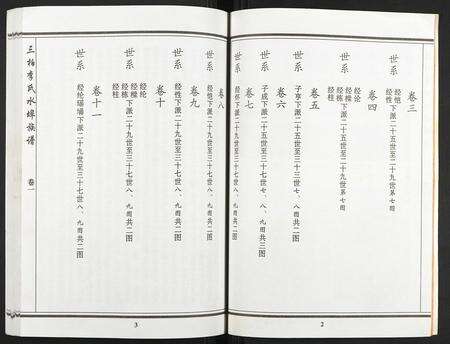 卷三
世系
经恺
经性下派二十五世至二十九世第七图
卷四
世系
经论
经模
经栋下派二十五世至二十九世第七图
经柱
卷五
世系
子亨下派二十九世至三十七世七、八、九图共三图
卷六
世系
子成下派二十九世至三十七世七、八、九图共三图
卷七
世系
下派二十九世至三十七世八、九图共二图
2
卷八
世系
经恺下派二十九世至三十七世八、九图共二图
卷九
世系
经性下派二十九世至三十七世八、九图共二图
卷十
世系
经纶
经模
经栋下派二十九世至三十七世八、九图共二图
经柱
卷十一
世系
经纶下派二十九世至三十七世八、九图共二图
3
三柏李氏水 族谱
卷一